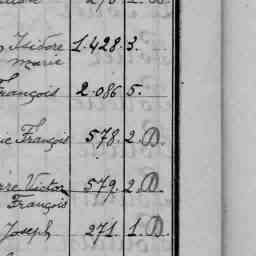 Isidore 1.428.3.
Marie
François 2.086 5.
François 578.2.D.
Victor 579.2.D.
François
Joseph 271. 1.D.